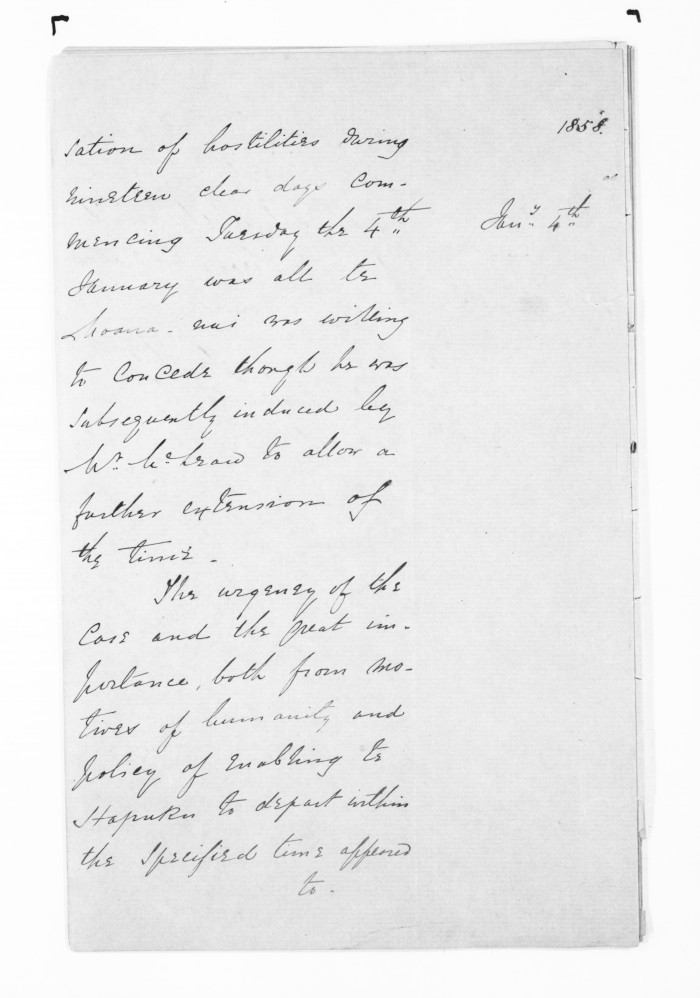 1858.
sation of hostilities during
nineteen clear days com-
mencing Tuesday the 4th
Jany 4th
January was all te
Moana-nui was willing
to concede though he was
subsequently induced by
Mr. McLean to allow a
further extension of
the time -
The urgency of the
case and the great im-
portance, both from mo-
tives of humanity and
policy of enabling te
Hapuku to depart within
the specified time appeared
to -